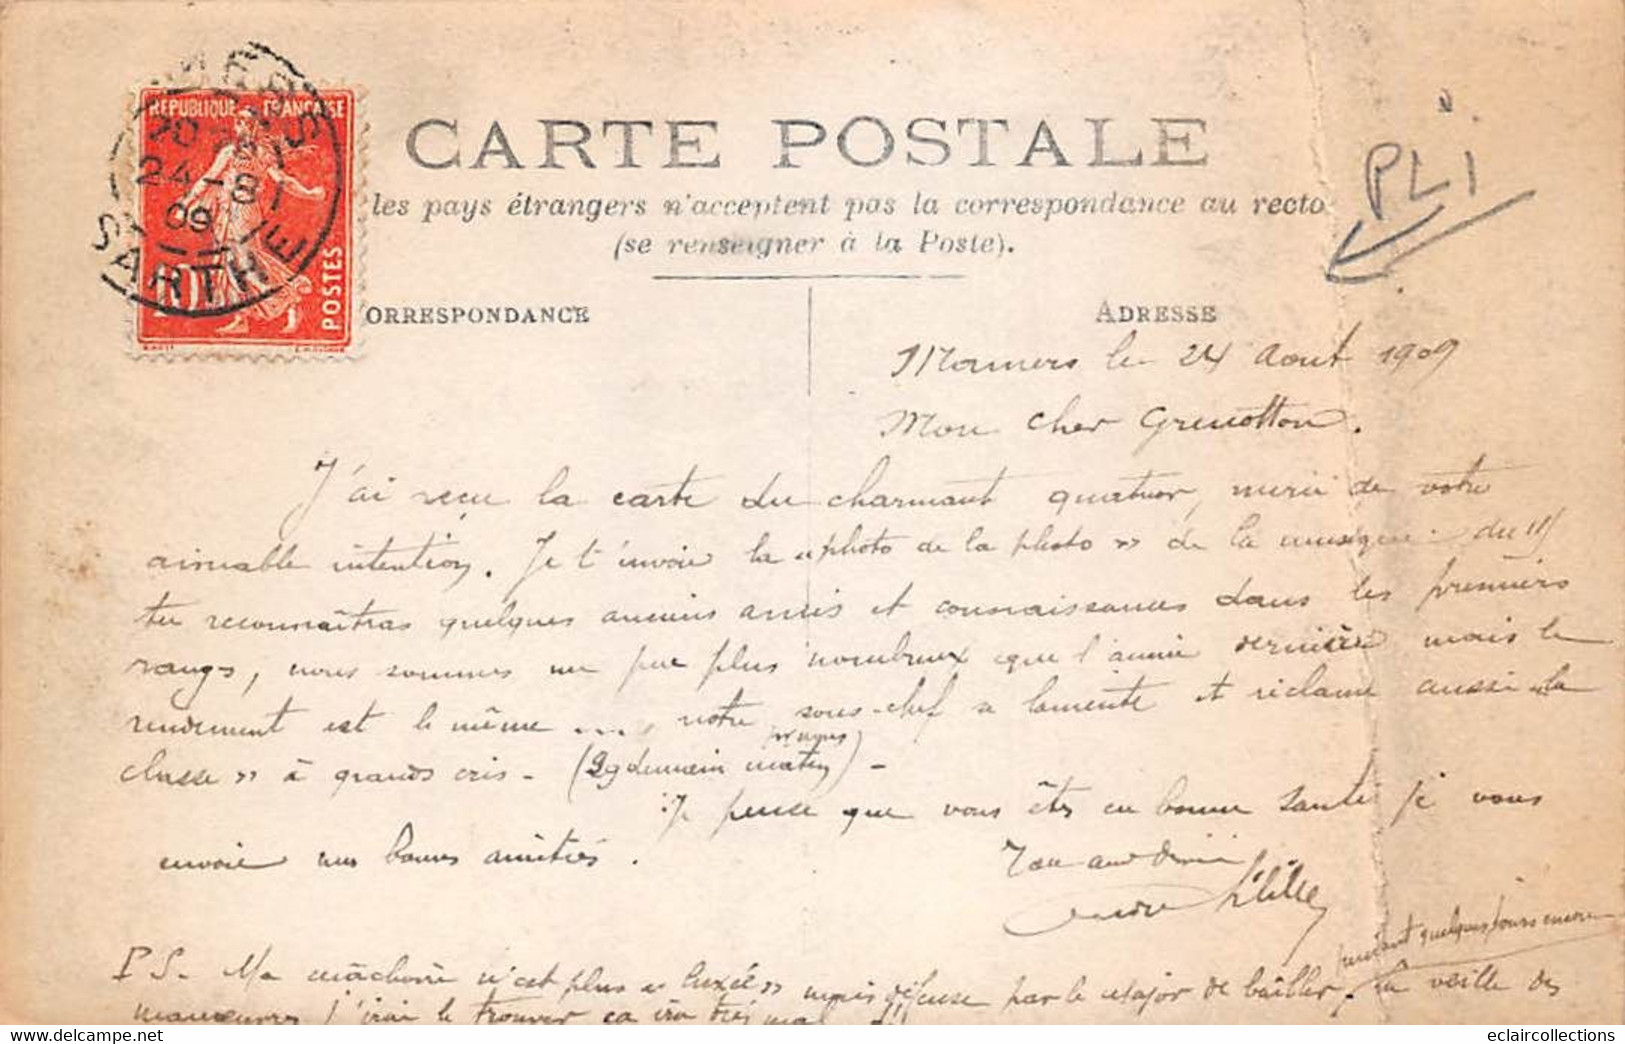 REPUBLIQUE FRANÇAISE
24-8
09
SARTHE
10
POSTES
CARTE POSTALE
les pays étrangers n'acceptent pas la correspondance au recto
(se renseigner à la Poste).
PLI
ORRESPONDANCE
ADRESSE
Mamers le 24 Aout 1909
Mon cher Grenotton.
J'ai reçu la carte du charmant quatuor, merci de votre
aimable intention. Je t'envoie la « photo de la photo » de la musique du 115
tu reconnaîtras quelques anciens amis et connaissances dans les premiers
rangs, nous sommes un peu plus nombreux que l'année dernière mais le
rendement est le même .... notre sous-chef se lamente et réclame aussi « la
classe » à grands cris - (29 demain matin) -
Je pense que vous êtes en bonne santé je vous
envoie mes bonnes amitiés.
Ton
André
pendant quelques jours encore
PS. Ma mâchoire n'est plus « luxée » mais défense par le Major de bailler, la veille des
manœuvres j'irai le trouver ça ira très mal !!
eclaircollections